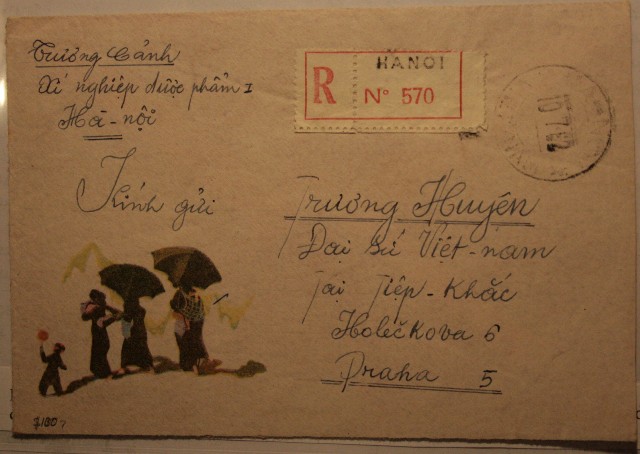 Trương Cảnh
Xí nghiệp dược phẩm I
Hà-nội
R
HANOI
Nº 570
10.7.62
Kính gửi
Trương Huyên
Đại Sứ Việt-nam
Tại Tiệp-Khắc
Holečkova 6
Praha 5